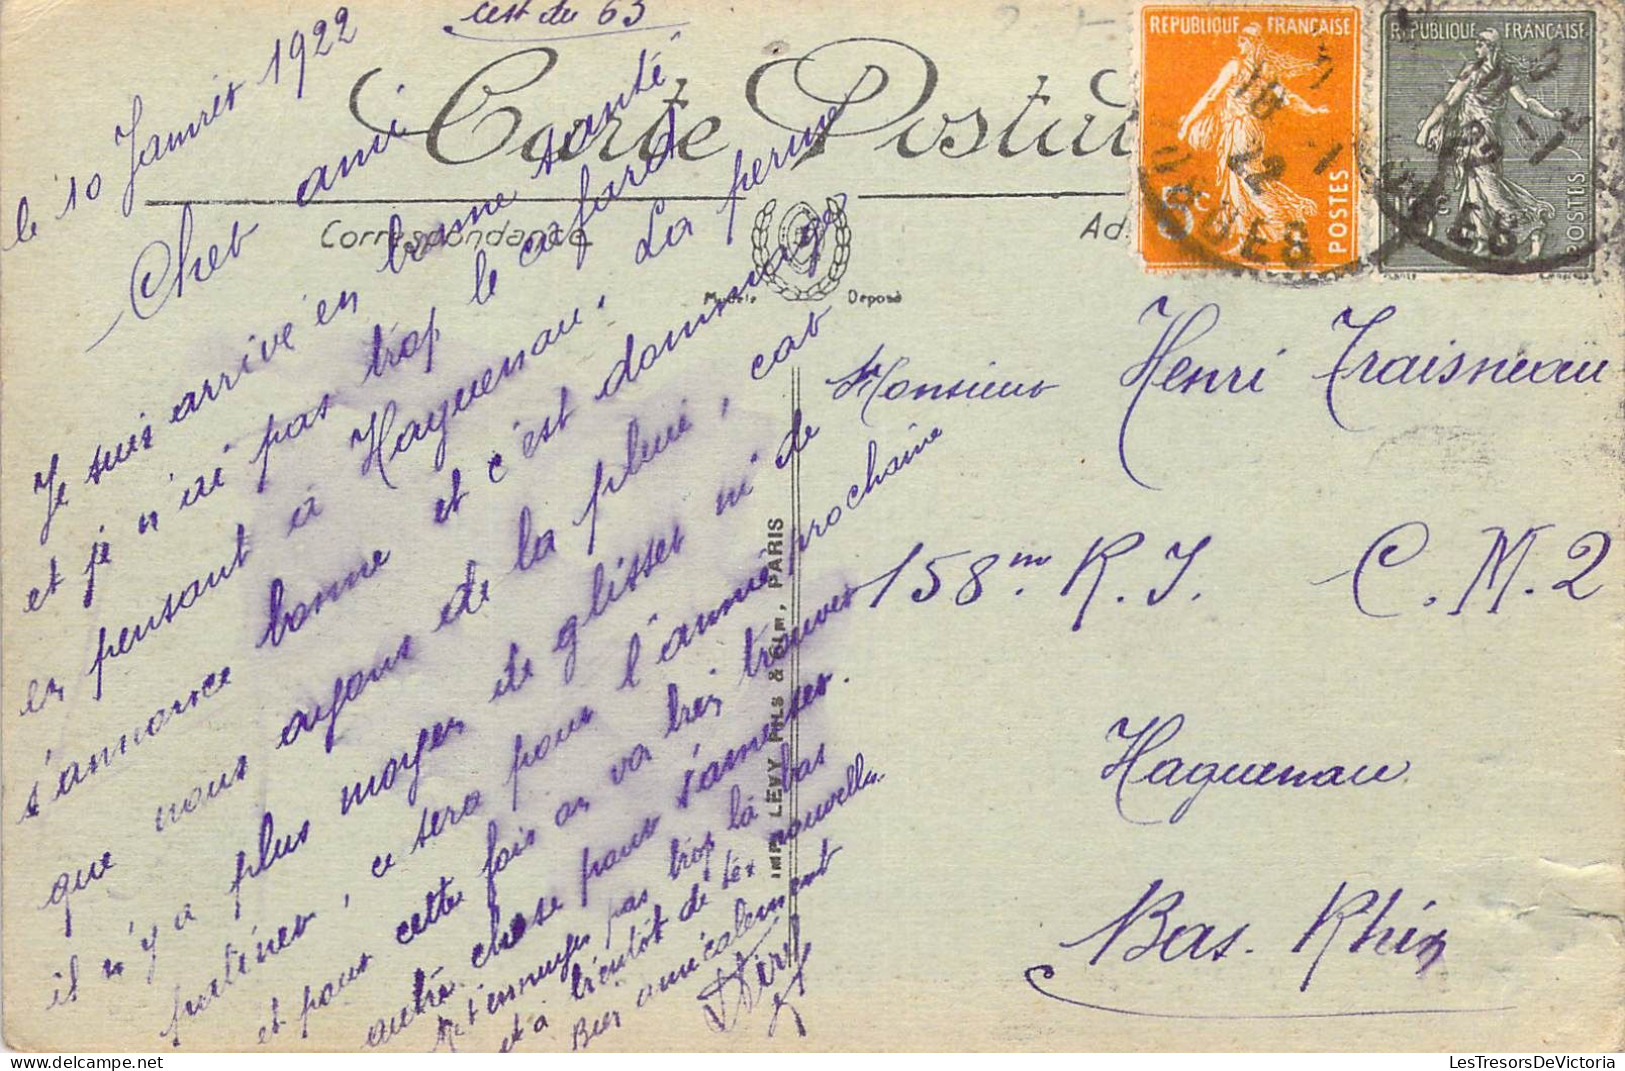 c'est du 63
le 10 Janvier 1922
Carte Postale
Correspondance
Modèle Déposé
RÉPUBLIQUE FRANÇAISE
5c
POSTES
RÉPUBLIQUE FRANÇAISE
POSTES
Cher ami
Je suis arrivé en bonne santé
et je n'ai pas trop le cafard
en pensant à Haguenau. La perme
s'annonce bonne et c'est dommage
que nous ayons de la pluie, car
il n'y a plus moyen de glisser ni de
patiner, ce sera pour l'année prochaine
et pour cette fois on va bien trouver
autre chose pour s'amuser.
Ne t'ennuyes pas trop là bas
et à bientôt de tes nouvelles
Bien amicalement
IMP. LEVY FILS & Cie, PARIS
Monsieur Henri Traisneau
158m R. I. C. M. 2
Haguenau
Bas. Rhin
LesTresorsDeVictoria